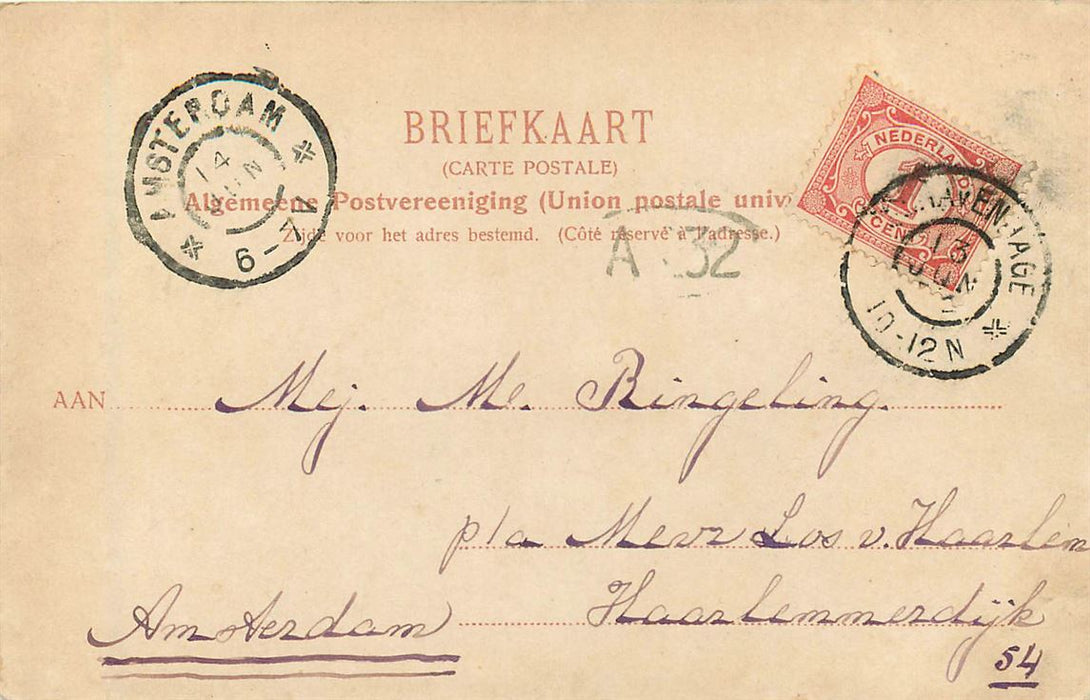 AMSTERDAM
14
JUN
6-7 V
BRIEFKAART
(CARTE POSTALE)
Algemeene Postvereeniging (Union postale univ
Zijde voor het adres bestemd. (Côté réservé à l'adresse.)
NEDERLAND
1
CENT
'S GRAVENHAGE
13
JUN
10-12 N
A 32
AAN Mej. Me. Ringeling.
p/a Mevr Los v. Haarlem
Haarlemmerdijk
54
Amsterdam